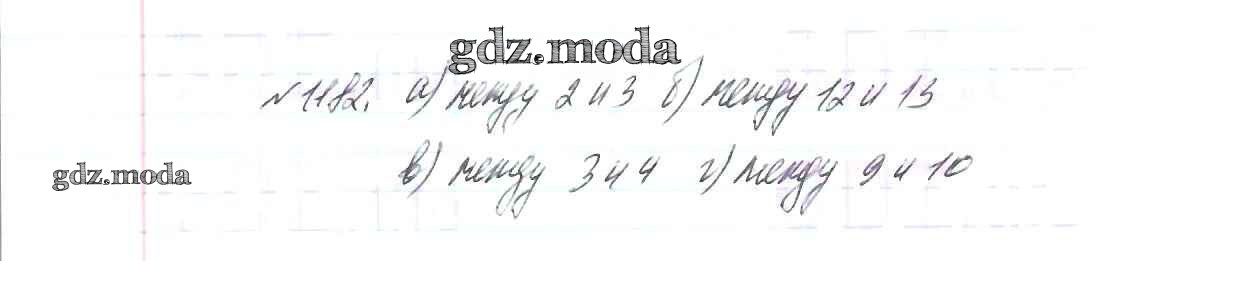 gdz.moda
№1182. а) между 2 и 3 б) между 12 и 13
в) между 3 и 4 г) между 9 и 10
gdz.moda